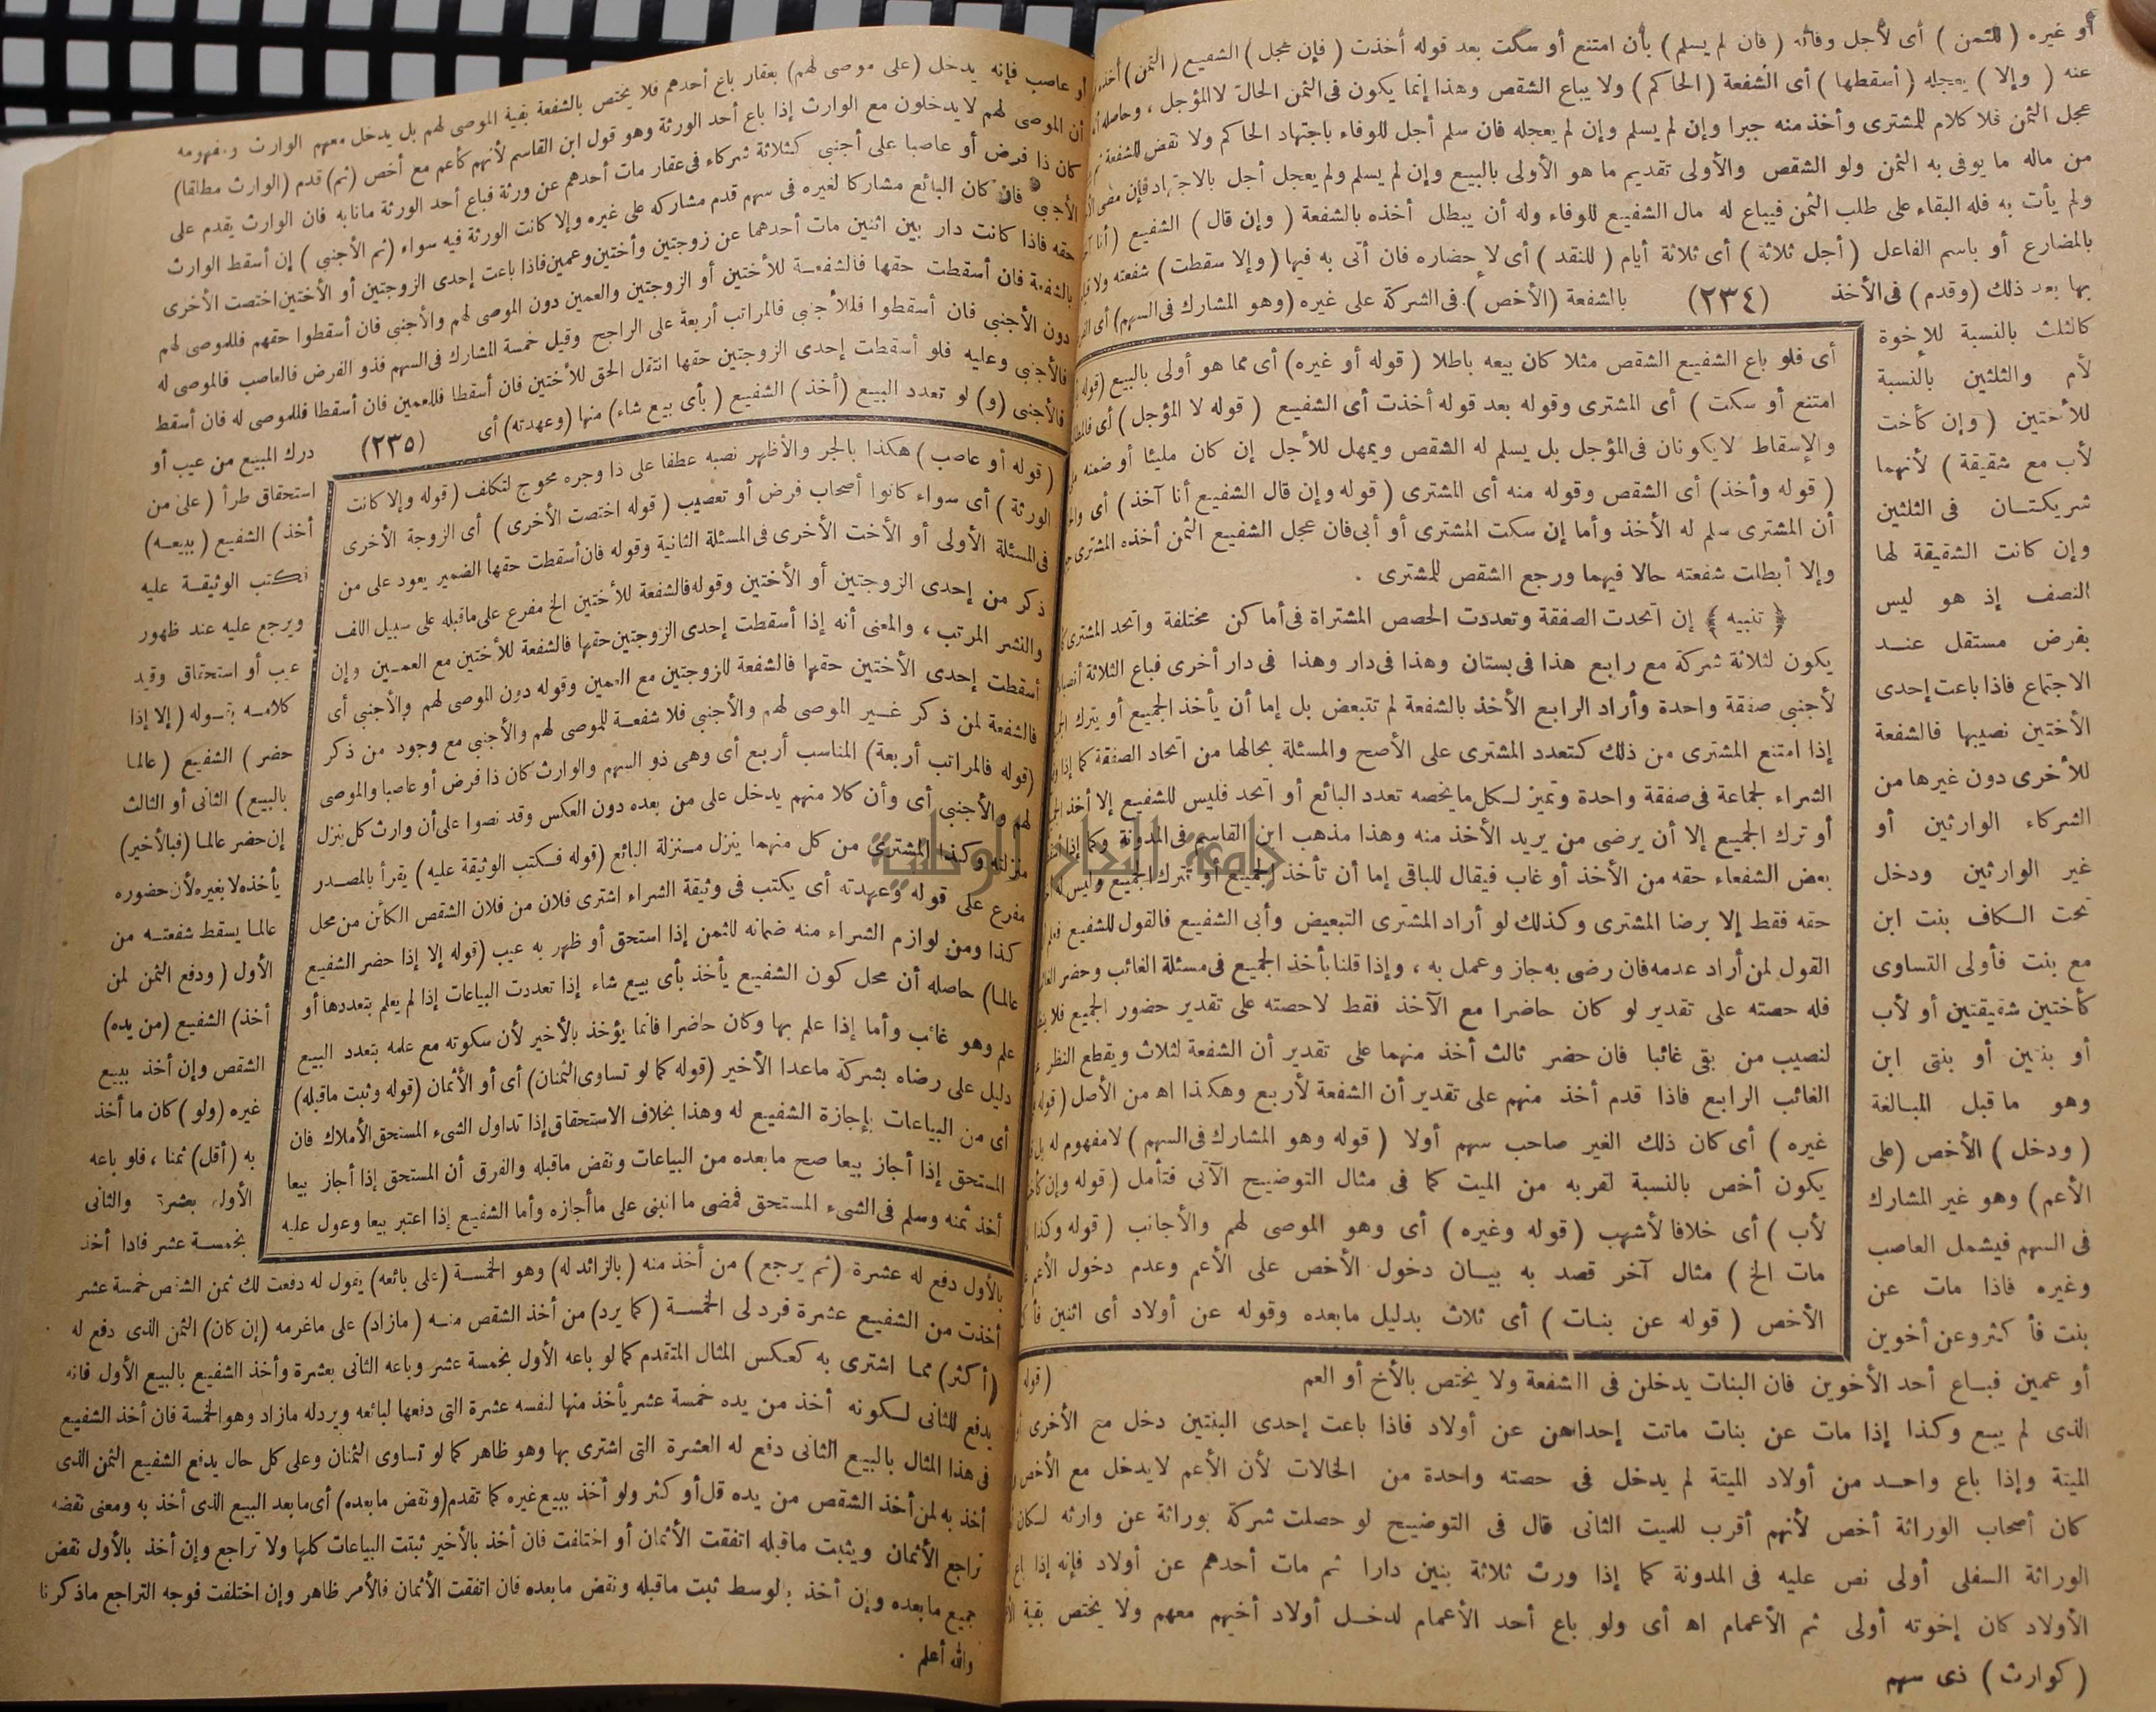 أو غيره (للثمن) أى لأجل وفائه (فإن لم يسلم) بأن امتنع أو سكت بعد قوله أخذت (فإن عجل) الشفيع (الثمن) أخذه
عنه (وإلا) يعجله (أسقطها) أى الشفعة (الحاكم) ولا يباع الشقص وهذا إنما يكون فى الثمن الحال لا المؤجل ، وحاصله
عجل الثمن فلا كلام للمشترى وأخذ منه جبرا وإن لم يسلم وإن لم يعجله فان سلم أجل للوفاء باجتهاد الحاكم ولا نقض للشفعة
من ماله ما يوفى به الثمن ولو الشقص والأولى تقديم ما هو الأولى بالبيع وإن لم يسلم ولم يعجل أجل بالاجتهاد فإن مضى
ولم يأت به فله البقاء على طلب الثمن فيباع له مال الشفيع للوفاء وله أن يبطل أخذه بالشفعة (وإن قال) الشفيع (أنا
بالمضارع أو باسم الفاعل (أجل ثلاثة) أى ثلاثة أيام (للنقد) أى لإحضاره فان أتى به فيها (وإلا سقطت) شفعته ولا
بها بعد ذلك (وقدم) فى الأخذ (٢٣٤) بالشفعة (الأخص) فى الشركة على غيره (وهو المشارك فى السهم) أى
كالثلث بالنسبة للإخوة
لأم والثلثين بالنسبة
للأختين (وإن كأخت
لأب مع شقيقة) لأنهما
شريكتان فى الثلثين
وإن كانت الشقيقة لها
النصف إذ هو ليس
بفرض مستقل عند
الاجتماع فاذا باعت إحدى
الأختين نصيبها فالشفعة
للأخرى دون غيرها من
الشركاء الوارثين أو
غير الوارثين ودخل
تحت الكاف بنت ابن
مع بنت فأولى التساوى
كأختين شقيقتين أو لأب
أو بنتين أو بنتى ابن
وهو ما قبل المبالغة
(ودخل) الأخص (على
الأعم) وهو غير المشارك
فى السهم فيشمل العاصب
وغيره فاذا مات عن
بنت فأكثر وعن أخوين
أى فلو باع الشفيع الشقص مثلا كان بيعه باطلا (قوله أو غيره) أى مما هو أولى بالبيع (قوله
امتنع أو سكت) أى المشترى وقوله بعد قوله أخذت أى الشفيع (قوله لا المؤجل) أى
والإسقاط لا يكونان فى المؤجل بل يسلم له الشقص ويمهل للأجل إن كان مليئا أو ضمنه
(قوله وأخذ) أى الشقص وقوله منه أى المشترى (قوله وإن قال الشفيع أنا آخذ) أى
أن المشترى سلم له الأخذ وأما إن سكت المشترى أو أبى فان عجل الشفيع الثمن أخذه المشترى
وإلا أبطلت شفعته حالا فيهما ورجع الشقص للمشترى .
﴿تنبيه﴾ إن اتحدت الصفقة وتعددت الحصص المشتراة فى أماكن مختلفة واتحد المشترى
يكون لثلاثة شركة مع رابع هذا فى بستان وهذا فى دار وهذا فى دار أخرى فباع الثلاثة
لأجنبى صفقة واحدة وأراد الرابع الأخذ بالشفعة لم تتبعض بل إما أن يأخذ الجميع أو يترك
إذا امتنع المشترى من ذلك كتعدد المشترى على الأصح والمسئلة بحالها من اتحاد الصفقة كما إذا
الشراء لجماعة فى صفقة واحدة وتميز لكل ما يخصه تعدد البائع أو اتحد فليس للشفيع إلا أخذ
أو ترك الجميع إلا أن يرضى من يريد الأخذ منه وهذا مذهب ابن القاسم فى المدونة وكما إذا
بعض الشفعاء حقه من الأخذ أو غاب فيقال للباقى إما أن تأخذ الجميع أو تترك الجميع وليس له
حقه فقط إلا برضا المشترى وكذلك لو أراد المشترى التبعيض وأبى الشفيع فالقول للشفيع
القول لمن أراد عدمه فان رضى به جاز وعمل به ، وإذا قلنا بأخذ الجميع فى مسئلة الغائب وحضر
فله حصته على تقدير لو كان حاضرا مع الآخذ فقط لا حصته على تقدير حضور الجميع فلا
لنصيب من بقى غائبا فان حضر ثالث أخذ منهما على تقدير أن الشفعة لثلاث ويقطع النظر
الغائب الرابع فاذا قدم أخذ منهم على تقدير أن الشفعة لأربع وهكذا اه من الأصل (قوله
غيره) أى كان ذلك الغير صاحب سهم أولا (قوله وهو المشارك فى السهم) لا مفهوم له بل
يكون أخص بالنسبة لقربه من الميت كما فى مثال التوضيح الآتى فتأمل (قوله وإن
لأب) أى خلافا لأشهب (قوله وغيره) أى وهو الموصى لهم والأجانب (قوله وكذا
مات الخ) مثال آخر قصد به بيان دخول الأخص على الأعم وعدم دخول الأعم
الأخص (قوله عن بنات) أى ثلاث بدليل ما بعده وقوله عن أولاد أى اثنين
(قوله
أو عمين فباع أحد الأخوين فان البنات يدخلن فى الشفعة ولا يختص بالأخ أو العم
الذى لم يبع وكذا إذا مات عن بنات ماتت إحداهن عن أولاد فاذا باعت إحدى البنتين دخل مع الأخرى
الميتة وإذا باع واحد من أولاد الميتة لم يدخل فى حصته واحدة من الخالات لأن الأعم لا يدخل مع الأخص
كان أصحاب الوراثة أخص لأنهم أقرب للميت الثانى قال فى التوضيح لو حصلت شركة بوراثة عن وارثه لكان
الوراثة السفلى أولى نص عليه فى المدونة كما إذا ورث ثلاثة بنين دارا ثم مات أحدهم عن أولاد فإنه إذا باع
الأولاد كان إخوته أولى ثم الأعمام اه أى ولو باع أحد الأعمام لدخل أولاد أخيهم معهم ولا يختص بقية
(كوارث) ذى سهم
أو عاصب فإنه يدخل (على موصى لهم) بعقار باع أحدهم فلا يختص بالشفعة بقية الموصى لهم بل يدخل معهم الوارث ومفهومه
أن الموصى لهم لا يدخلون مع الوارث إذا باع أحد الورثة وهو قول ابن القاسم لأنهم كأعم مع أخص (ثم) قدم (الوارث مطلقا)
كان ذا فرض أو عاصبا على أجنبى كثلاثة شركاء فى عقار مات أحدهم عن ورثة فباع أحد الورثة مانابه فان الوارث يقدم على
الأجنبى فان كان البائع مشاركا لغيره فى سهم قدم مشاركه على غيره وإلا كانت الورثة فيه سواء (ثم الأجنبى) إن أسقط الوارث
حقه فاذا كانت دار بين اثنين مات أحدهما عن زوجتين وأختين وعمين فاذا باعت إحدى الزوجتين أو الأختين اختصت الأخرى
بالشفعة فان أسقطت حقها فالشفعة للأختين أو الزوجتين والعمين دون الموصى لهم والأجنبى فان أسقطوا حقهم فللموصى لهم
دون الأجنبى فان أسقطوا فللأجنبى فالمراتب أربعة على الراجح وقيل خمسة المشارك فى السهم فذو الفرض فالعاصب فالموصى له
فالأجنبى وعليه فلو أسقطت إحدى الزوجتين حقها انتقل الحق للأختين فان أسقطا فللعمين فان أسقطا فللموصى له فان أسقط
فالأجنبى (و) لو تعدد البيع (أخذ) الشفيع (بأى بيع شاء) منها (وعهدته) أى (٢٣٥) درك المبيع من عيب أو
استحقاق طرأ (على من
أخذ) الشفيع (ببيعه)
فتكتب الوثيقة عليه
ويرجع عليه عند ظهور
عيب أو استحقاق وقيد
كلامه بقوله (إلا إذا
حضر) الشفيع (عالما
بالبيع) الثانى أو الثالث
إن حضر عالما (فبالأخير)
يأخذه لا بغيره لأن حضوره
عالما يسقط شفعته من
الأول (ودفع الثمن لمن
أخذ) الشفيع (من يده)
الشقص وإن أخذ ببيع
غيره (ولو) كان ما أخذ
به (أقل) ثمنا ، فلو باعه
الأول بعشرة والثانى
بخمسة عشر فاذا أخذ
(قوله أو عاصب) هكذا بالجر والأظهر نصبه عطفا على ذا وجره محوج لتكلف (قوله وإلا كانت
الورثة) أى سواء كانوا أصحاب فرض أو تعصيب (قوله اختصت الأخرى) أى الزوجة الأخرى
فى المسئلة الأولى أو الأخت الأخرى فى المسئلة الثانية وقوله فان أسقطت حقها الضمير يعود على من
ذكر من إحدى الزوجتين أو الأختين وقوله فالشفعة للأختين الخ مفرع على ما قبله على سبيل اللف
والنشر المرتب ، والمعنى أنه إذا أسقطت إحدى الزوجتين حقها فالشفعة للأختين مع العمين وإن
أسقطت إحدى الأختين حقها فالشفعة للزوجتين مع العمين وقوله دون الموصى لهم والأجنبى أى
فالشفعة لمن ذكر غير الموصى لهم والأجنبى فلا شفعة للموصى لهم والأجنبى مع وجود من ذكر
(قوله فالمراتب أربعة) المناسب أربع أى وهى ذو السهم والوارث كان ذا فرض أو عاصبا والموصى
لهم والأجنبى أى وأن كلا منهم يدخل على من بعده دون العكس وقد نصوا على أن وارث كل ينزل
منزلته وكذا المشترى من كل منهما ينزل منزلة البائع (قوله فكتب الوثيقة عليه) يقرأ بالمصدر
مفرع على قوله وعهدته أى يكتب فى وثيقة الشراء اشترى فلان من فلان الشقص الكائن من محل
كذا ومن لوازم الشراء منه ضمانه للثمن إذا استحق أو ظهر به عيب (قوله إلا إذا حضر الشفيع
عالما) حاصله أن محل كون الشفيع يأخذ بأى بيع شاء إذا تعددت البياعات إذا لم يعلم بتعددها أو
علم وهو غائب وأما إذا علم بها وكان حاضرا فانما يؤخذ بالأخير لأن سكوته مع علمه بتعدد البيع
دليل على رضاه بشركة ماعدا الأخير (قوله كما لو تساوى الثمنان) أى أو الأثمان (قوله وثبت ما قبله)
أى من البياعات بإجازة الشفيع له وهذا بخلاف الاستحقاق إذا تداول الشىء المستحق الأملاك فان
المستحق إذا أجاز بيعا صح ما بعده من البياعات ونقض ما قبله والفرق أن المستحق إذا أجاز بيعا
أخذ ثمنه وسلم فى الشىء المستحق فمضى ما انبنى على ما أجازه وأما الشفيع إذا اعتبر بيعا وعول عليه
بالأول دفع له عشرة (ثم يرجع) من أخذ منه (بالزائد له) وهو الخمسة (على بائعه) يقول له دفعت لك ثمن الشقص خمسة عشر
أخذت من الشفيع عشرة فرد لى الخمسة (كما يرد) من أخذ الشقص منه (مازاد) على ماغرمه (إن كان) الثمن الذى دفع له
(أكثر) مما اشترى به كعكس المثال المتقدم كما لو باعه الأول بخمسة عشر وباعه الثانى بعشرة وأخذ الشفيع بالبيع الأول فانه
يدفع للثانى لكونه أخذ من يده خمسة عشر يأخذ منها لنفسه عشرة التى دفعها لبائعه ويرد له مازاد وهو الخمسة فان أخذ الشفيع
فى هذا المثال بالبيع الثانى دفع له العشرة التى اشترى بها وهو ظاهر كما لو تساوى الثمنان وعلى كل حال يدفع الشفيع الثمن الذى
أخذ به لمن أخذ الشقص من يده قل أو كثر ولو أخذ ببيع غيره كما تقدم (ونقض ما بعده) أى ما بعد البيع الذى أخذ به ومعنى نقضه
تراجع الأثمان ويثبت ما قبله اتفقت الأثمان أو اختلفت فان أخذ بالأخير ثبتت البياعات كلها ولا تراجع وإن أخذ بالأول نقض
جميع ما بعده وإن أخذ بالوسط ثبت ما قبله ونقض ما بعده فان اتفقت الأثمان فالأمر ظاهر وإن اختلفت فوجه التراجع ماذكرنا
والله أعلم .
جامعة النجاح الوطنية